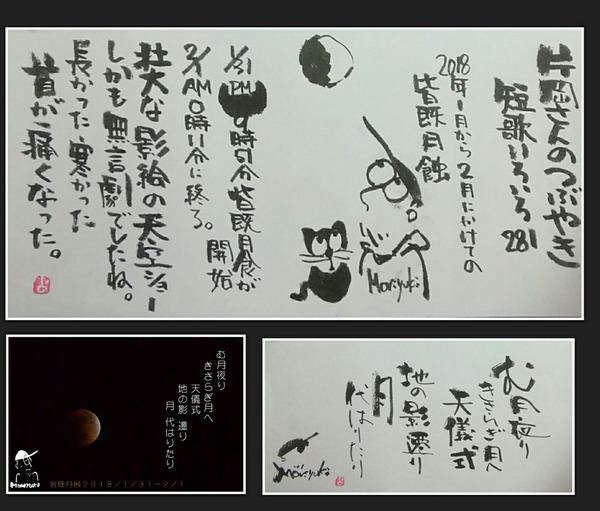 片岡さんのつぶやき
短歌いろいろ 281
2018年1月から2月にかけての
皆既月蝕
Moriyuki
1/31
PM 9時51分 皆既月食が
開始
2/1
AM 0時11分に終る。
壮大な影絵の天空ショー
しかも無言劇でしたね。
長かった 寒かった
首が痛くなった。
む月夜り
きさらぎ月へ
天儀式
地の影 遷り
月 代はりたり
MORIYUKI
皆既月蝕2018/1/31-2/1
む月夜り
きさらぎ月へ
天儀式
地の影遷り
月
代はりたり
Moriyuki